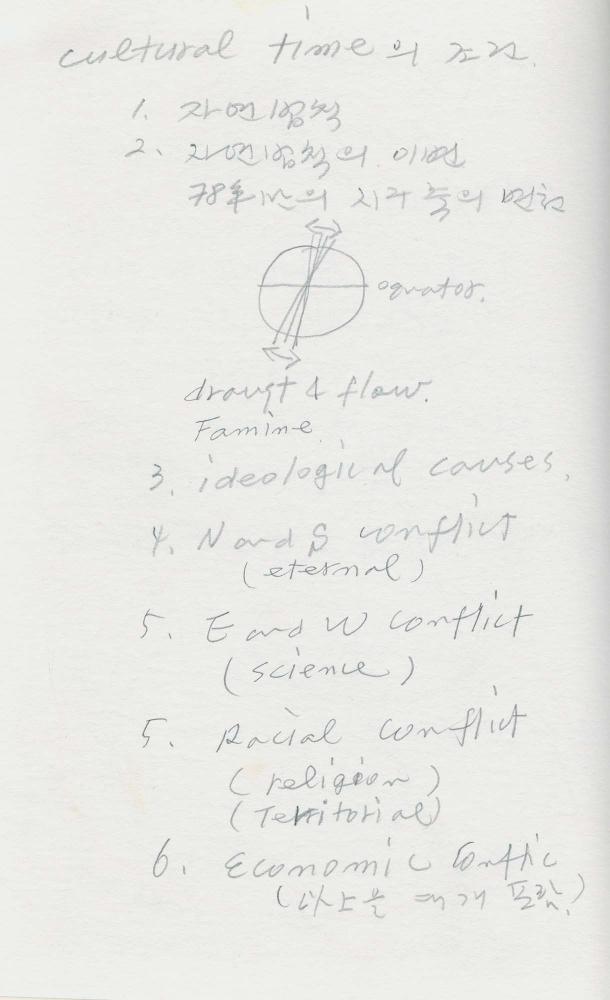 cultural time의 조건.
1. 자연법칙
2. 자연법칙의 이변
78年간의 지구 축의 변화
equator.
drougt & flow.
Famine.
3. ideological causes.
4. N and S conflict
(eternal)
5. E and W conflict
(science)
5. Racial conflict
(religion)
(Territorial)
6. Economic conflic
(以上을 포함)